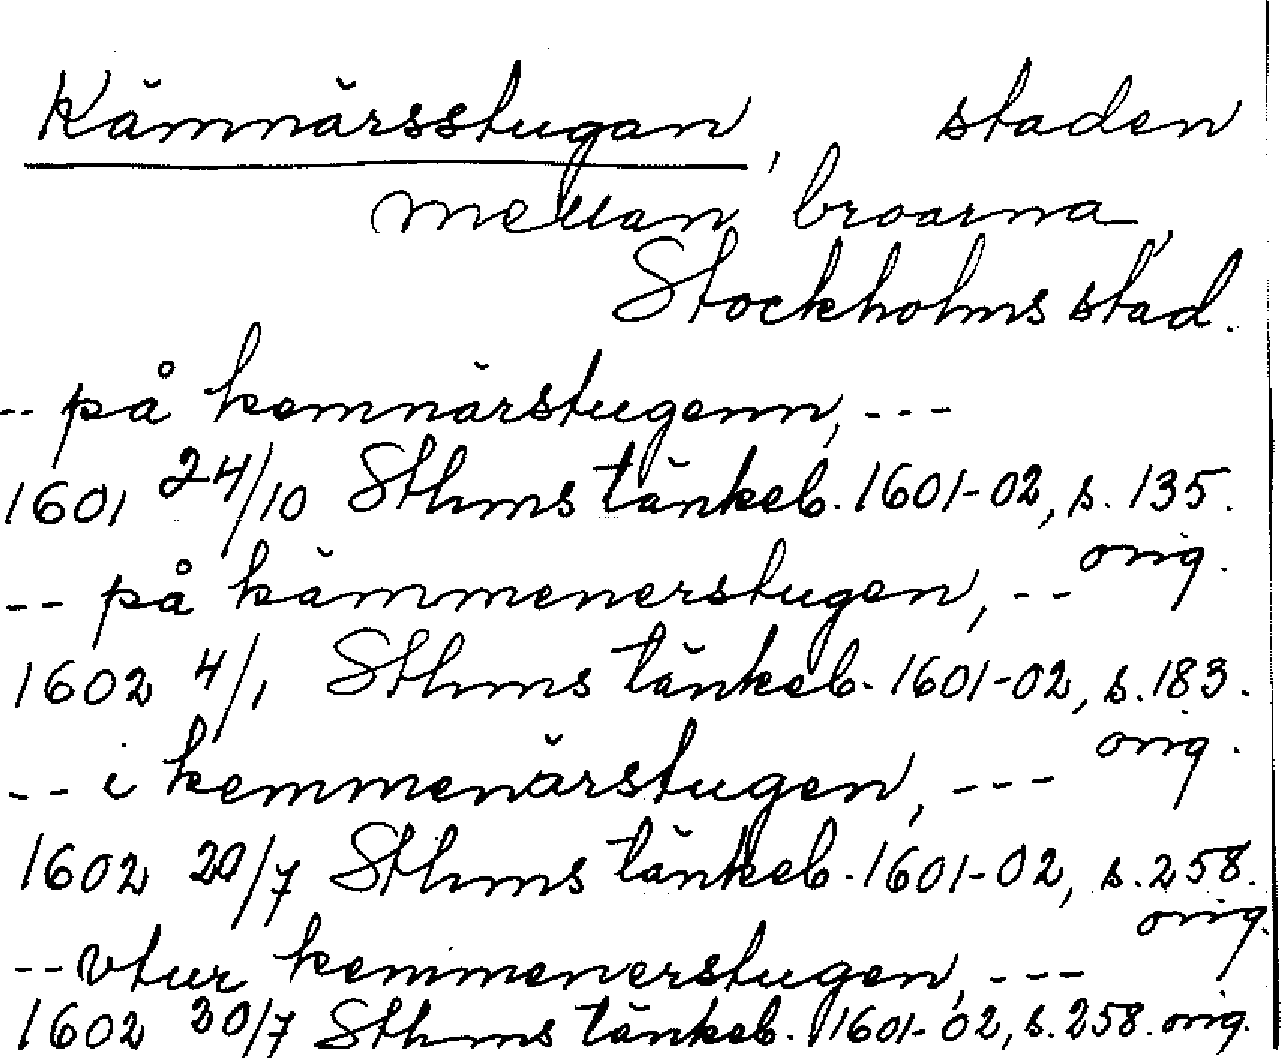 Kämnärsstugan, staden
mellan broarna,
Stockholms stad.
-- på kemnärstugenn, ---
1601 24/10 Sthms tänkeb. 1601-02, s. 135.
orig.
-- på kämmenerstugen, --
1602 4/1 Sthms tänkeb. 1601-02, s. 183.
orig.
-- i kemmenärstugen, ---
1602 20/7 Sthms tänkeb. 1601-02, s. 258.
orig.
-- vtur kemmenerstugen, ---
1602 20/7 Sthms tänkeb. 1601-02, s. 258. orig.